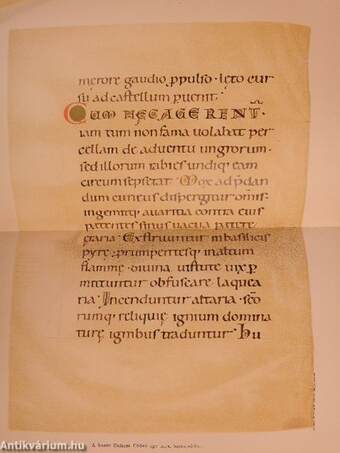 merore gaudio ꝓpulso. leto cur
su ad castellum ꝑuenit.
CUM HEC AGERENT̃.
iam tum non fama uolabat per
cellam de aduentu ungrorum.
sed illorum rabies undiq; eam
circum sepserat. Mox ad p̃dan
dum cuneus dispergitur om̃is.
ingemitq; auaritia contra eius
patentes sinus uacua
Exstruuntur in basilicis
pyrę. prumpentesq; in altum
flammę. diuina uirtute uix ꝑ
mittuntur obfuscare laquea
ria. Incenduntur altaria. sc̃o
rumq; reliquię ignium domina
turę ignibus traduntur. Hu
A Szent Codex egy
Antikvárium.hu
Antikvárium.hu